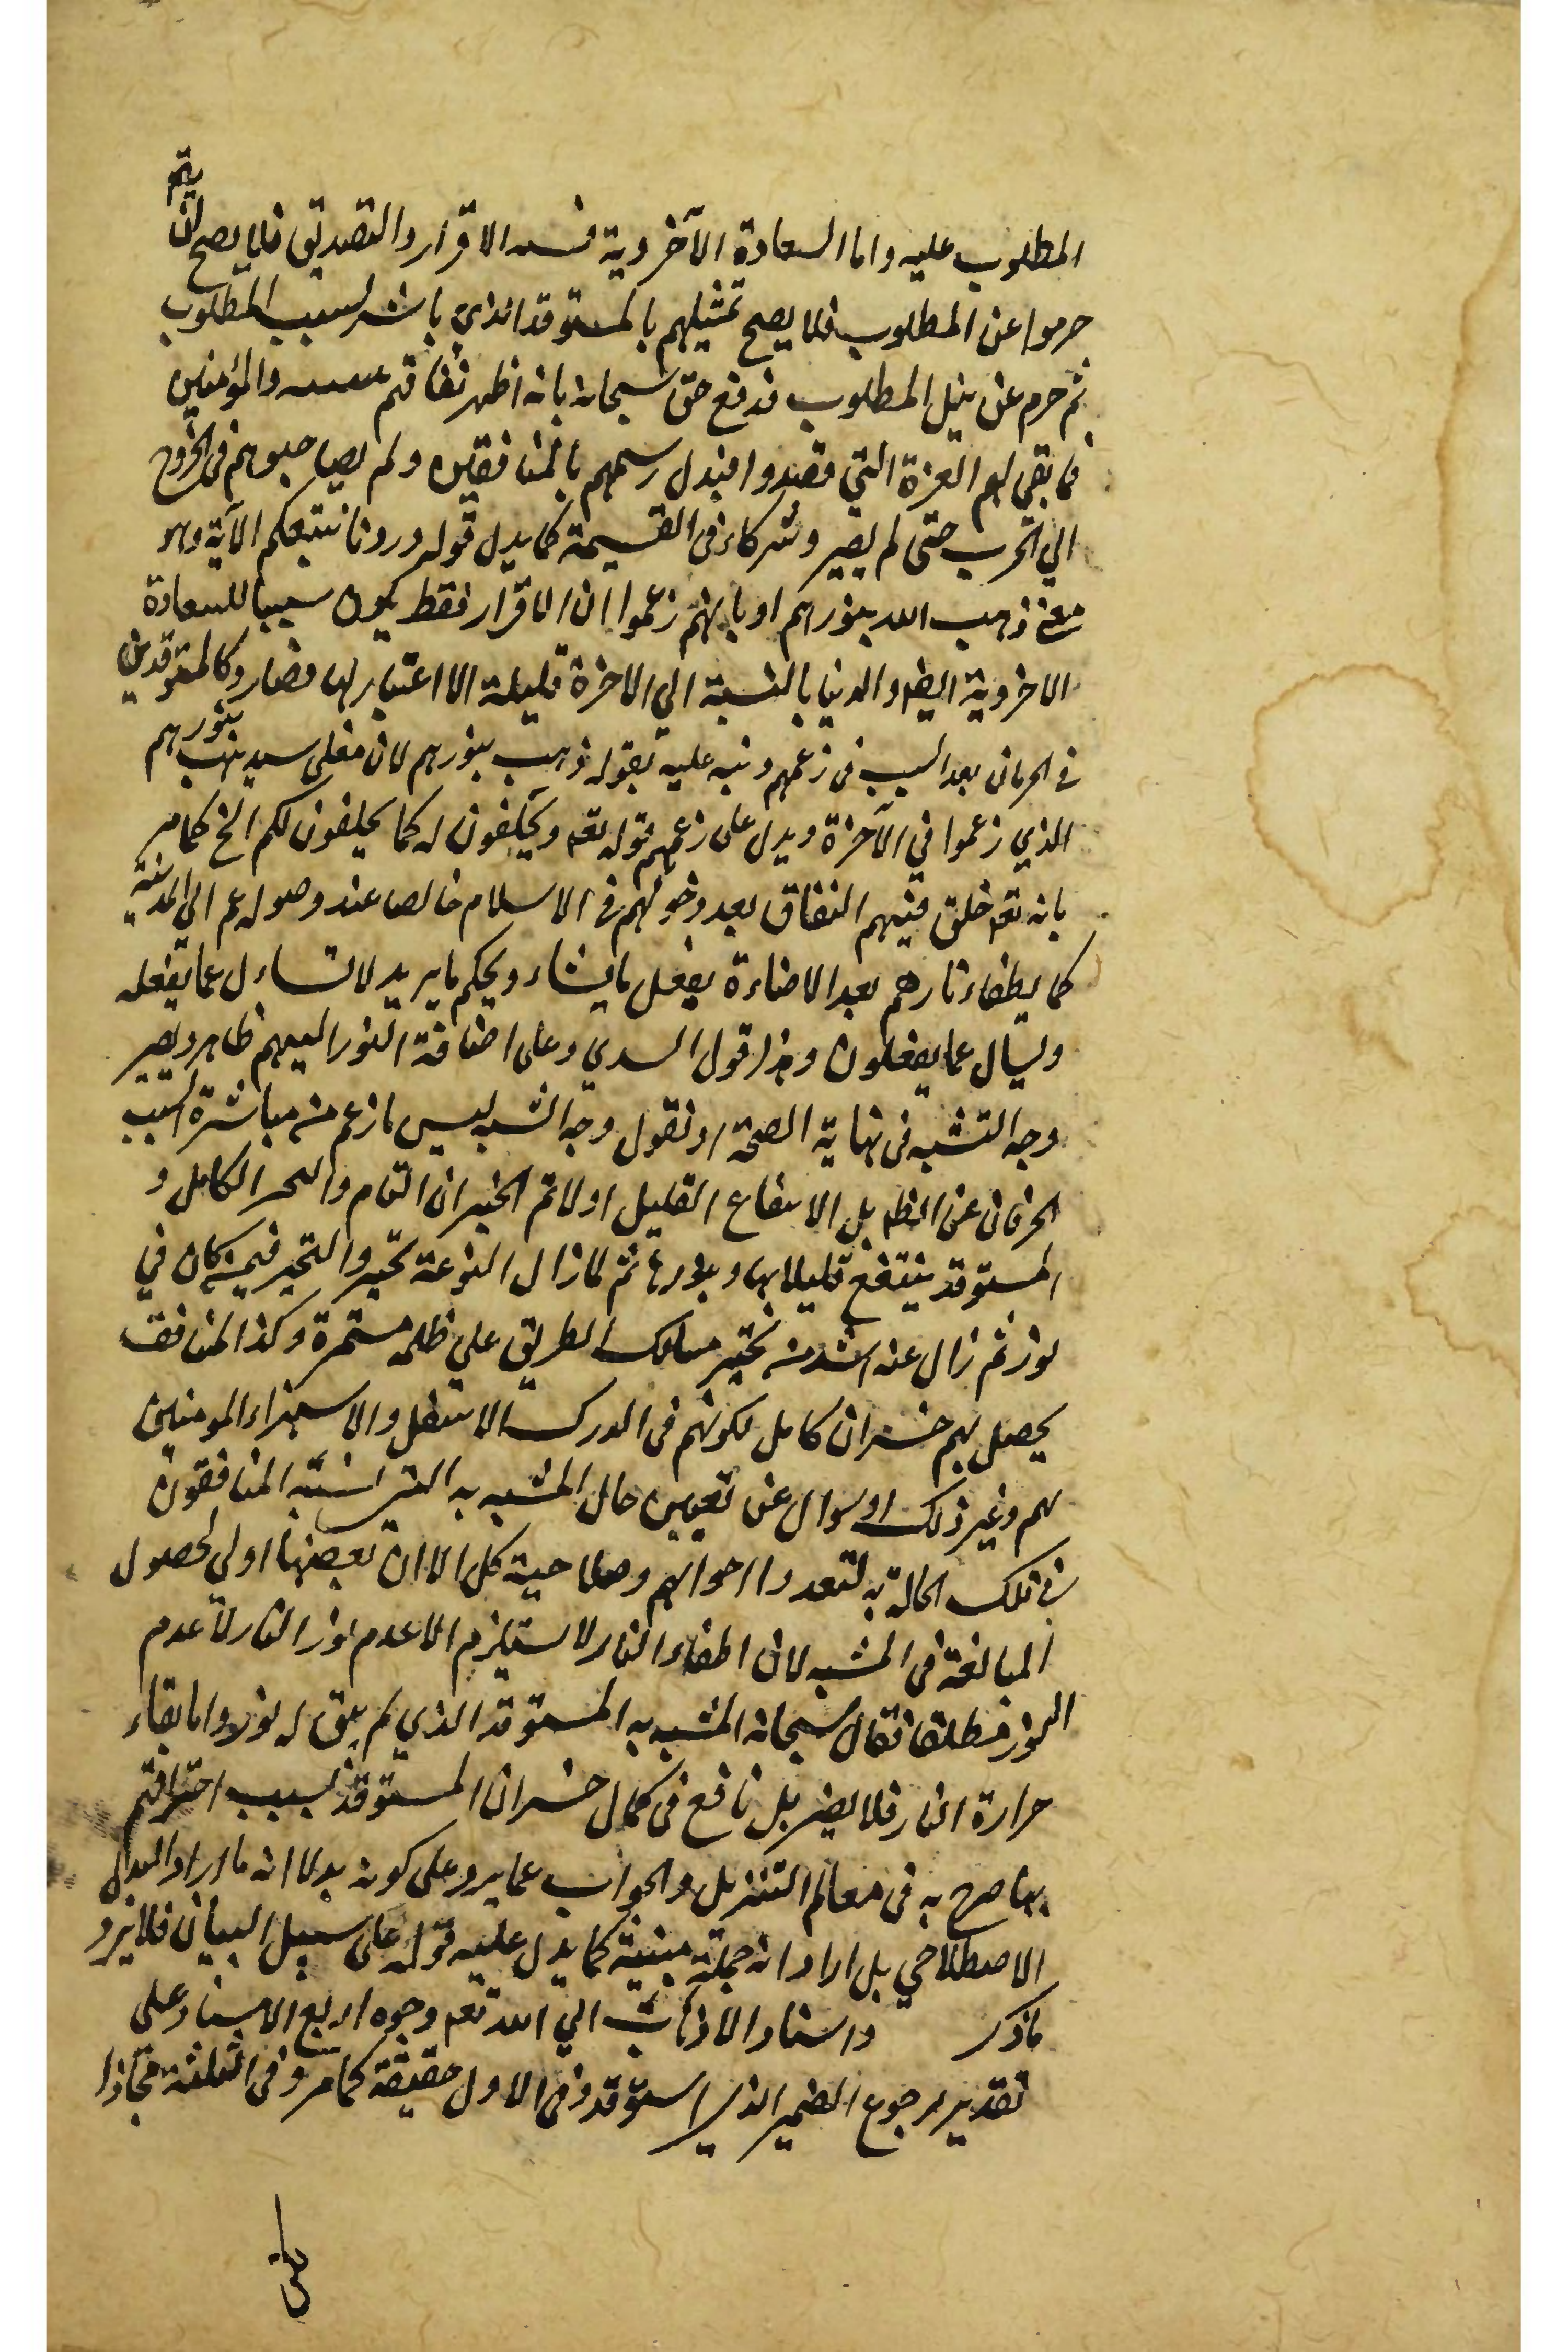 يتم
المطلوب عليه واما السعادة الآخروية فسه الاقرار والتصديق فلما يصح ان
حرموا عن المطلوب فلا يصح تمثيلهم بالمستوقد الذي باشر لسبب المطلوب
ثم حرم عن نيل المطلوب فدفع حق سبحانه بانه اظهر نفاقهم والمؤمنين
فما بقي لهم العزة التي قصدوا فبدل رسمهم بالمنافقين ولم يصاحبوهم في الخروج
الي الحرب حتى لم يصيروا شركاء في القسيمة كما يدل قوله ذرونا نتبعكم الآية وهو
معنى ذهب الله بنورهم او بانهم زعموا ان الاقرار فقط يكون سببا للسعادة
الاخروية ايضا والدنيا بالنسبة الي الاخرة قليلة لا اعتبار لها فصاروا كالمستوقدين
في الحرمان بعد السبب في زعمهم ونبه عليه بقوله ذهب بنورهم لان معنى سيذهب بنورهم
الذي زعموا في الآخرة ويدل على زعمهم قوله تعم ويحلفون له كما يحلفون لكم الخ كما مر
بانه تعم خلق فيهم النفاق بعد دخولهم في الاسلام خالصا عند وصوله عم الي المدينة
كما يطفاء نارهم بعد الاضاءة يفعل ما يشاء ويحكم ما يريد لا تساءل عما يفعله
ويسأل عما يفعلون وهذا قول السدي وعلى اضافة النور اليهم ظاهر ويصير
وجه التشبه في نهاية الصحة او نقول وجه الشبه ليس ما زعم من مباشرة السبب
الحرمان عن بل الانتفاع القليل اولا ثم الخسران التام والكامل و
المستوقد ينتفع قليلا بها وبنورها ثم لما زال تحير والتحير فيمن كان في
نور ثم زال عنه اشد من تحير سالك الطريق علي ظلمة مستمرة وكذا المنافق
يحصل لهم خسران كامل لكونهم في الدرك الاسفل والاستهزاء المومنين
لهم وغير ذلك او سوال عن تعيين حال المشبه به التي اشبه المنافقون
في تلك الحالة به لتعدد احوالهم وصلاحية كل الا ان بعضها اولي لحصول
المبالغة في المشبه لان اطفاء النار لا يستلزم الا عدم نور النار لا عدم
النور مطلقا فقال سبحانه المشبه به المستوقد الذي لم يبق له نور واما بقاء
حرارة النار فلا يضر بل نافع في كمال خسران المستوقد بسبب احتراقهم
بها صرح به في معالم التنزيل والجواب عما يرد على كونه بدلا انه ما اراد البدل
الاصطلاحي بل اراد انه جملة مبنية كما يدل عليه قوله على سبيل البيان فلا يرد
ما ذكر واسناد الاذهاب الي الله تعم وجوه اربع الاسناد على
تقدير رجوع الضمير الذي استوقد في الاول حقيقة كما مر وفي الثلثة مجازا